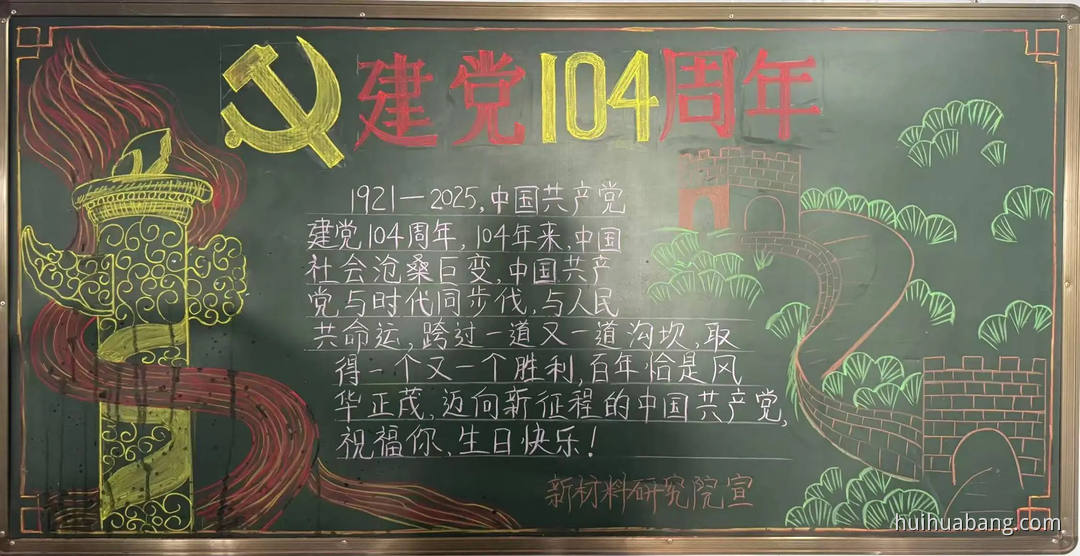 建党104周年
1921—2025,中国共产党
建党104周年,104年来,中国
社会沧桑巨变,中国共产
党与时代同步伐,与人民
共命运,跨过一道又一道沟坎,取
得一个又一个胜利,百年恰是风
华正茂,迈向新征程的中国共产党,
祝福你,生日快乐!
新材料研究院宣
huihuabang.com